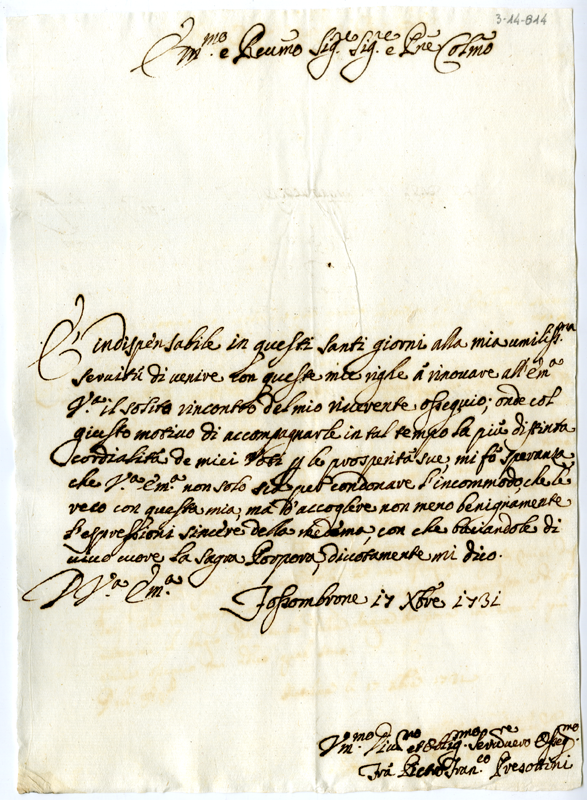 3-14-814
Em.mo e Reumo Sig.re Sig.re e Prne Colmo
E' indispensabile in questi santi giorni alla mia umiliss.ma
seruitù di uenire con queste mie righe à rinouare all' Em.a
V.a il solito rincontro del mio riuerente ossequio; onde col
giusto motiuo di accompagnarle in tal tempo la più distinta
cordialità de miei Voti p le prosperità sue mi fò speranza
che V.a Em.a non solo sia per condonare l'incommodo che le
reco con questa mia, mà d'accogliere non meno benignamente
l'espressioni sincere della medema, con che baciandole di
uiuo cuore la sagra Porpora, diuotamente mi dico.
D V.a Em.a
Fossombrone 17 Xbre 1731
Vm.mo Diu.mo et Oblig.mo Seruidore Osseq.mo
Frà Pietro Fran.co Presottini